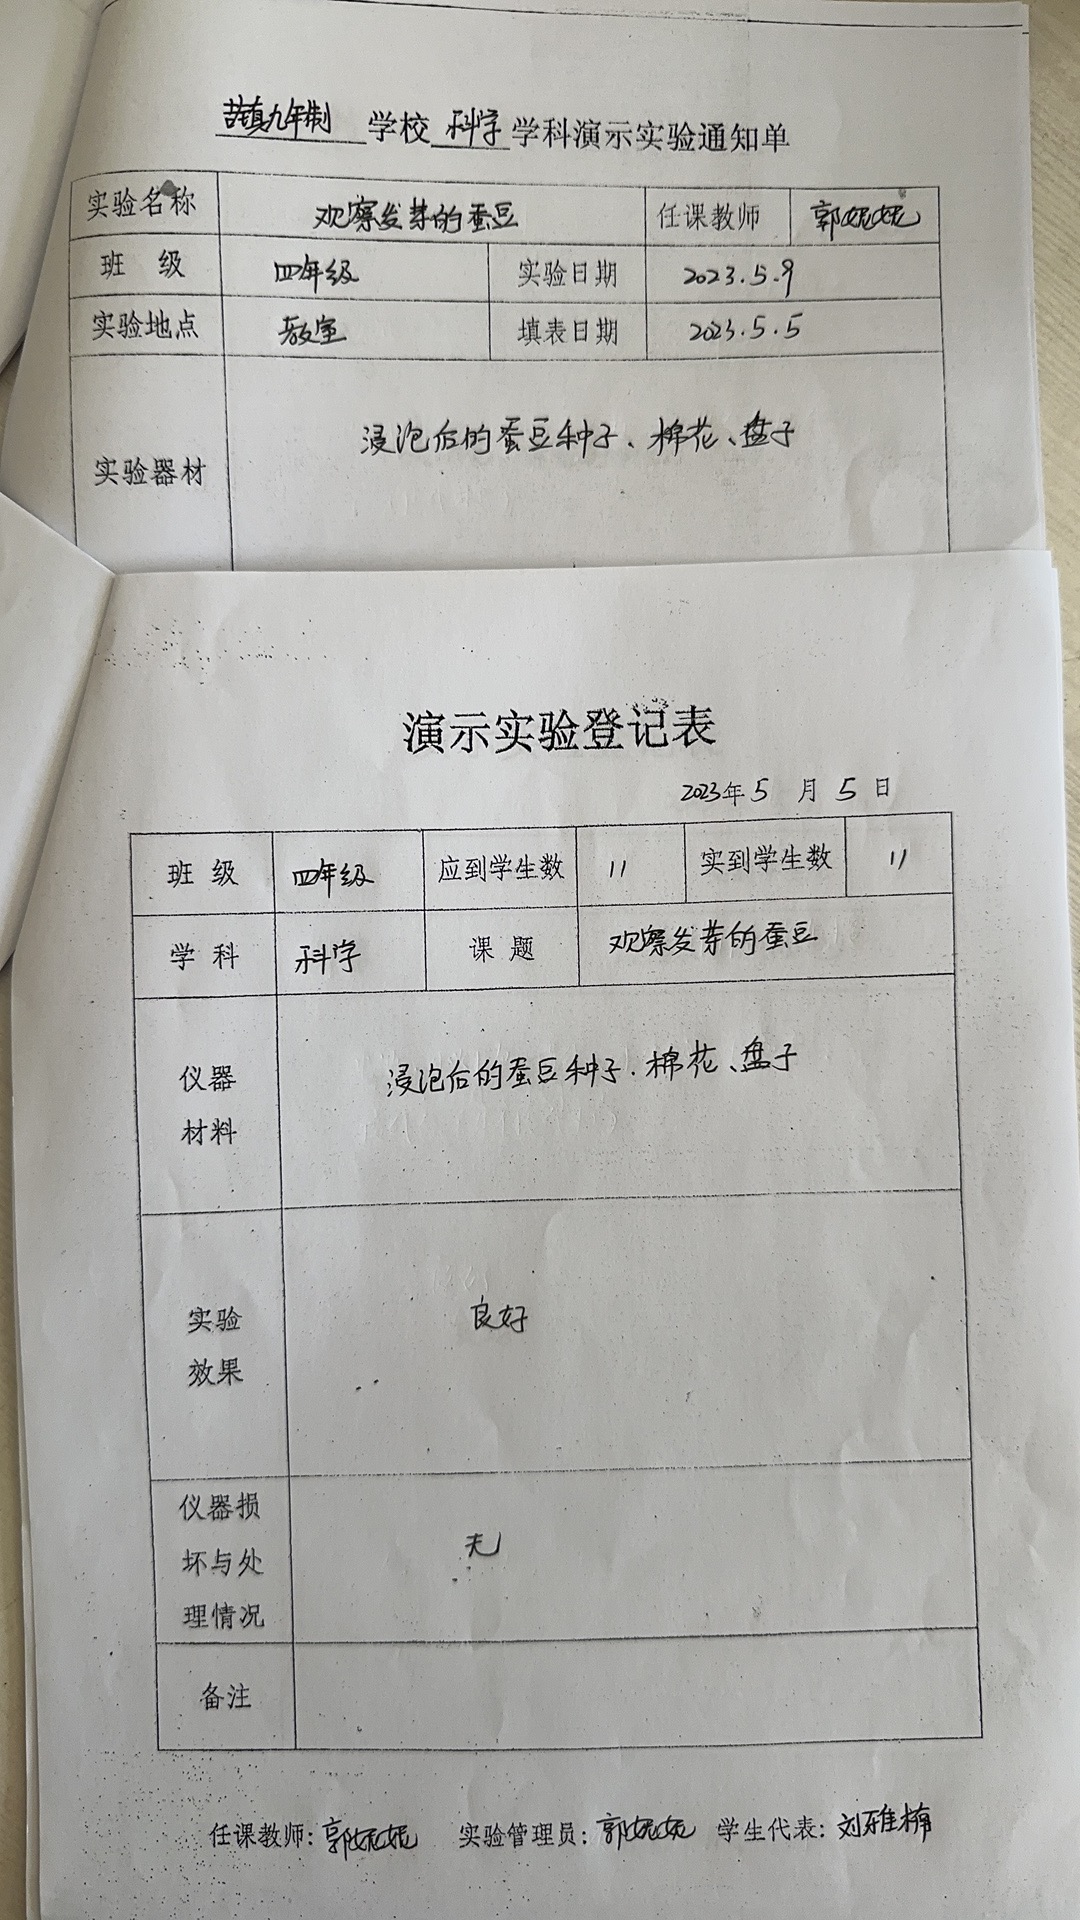 九年制 学校 科学 学科演示实验通知单
实验名称 观察发芽的蚕豆 任课教师 郭妮妮
班 级 四年级 实验日期 2023.5.9
实验地点 教室 填表日期 2023.5.5
实验器材 浸泡后的蚕豆种子、棉花、盘子
演示实验登记表
2023年5 月 5 日
班 级 四年级 应到学生数 11 实到学生数 11
学 科 科学 课 题 观察发芽的蚕豆
仪器
材料
浸泡后的蚕豆种子、棉花、盘子
实验
效果
良好
仪器损
坏与处
理情况
无
备注
任课教师: 郭妮妮 实验管理员: 郭妮妮 学生代表: 刘雅楠